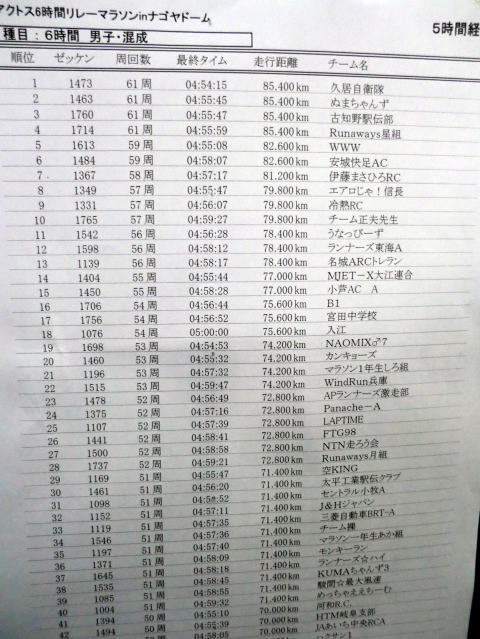 アクトス6時間リレーマラソンinナゴヤドーム
種目：6時間 男子・混成 5時間経
順位 ゼッケン 周回数 最終タイム 走行距離 チーム名
1 1473 61 周 04:54:15 85.400 km 久居自衛隊
2 1463 61 周 04:55:45 85.400 km ぬまちゃんず
3 1760 61 周 04:55:47 85.400 km 古知野駅伝部
4 1714 61 周 04:55:59 85.400 km Runaways星組
5 1613 59 周 04:55:08 82.600 km WWW
6 1484 59 周 04:58:07 82.600 km 安城快足AC
7 1367 58 周 04:57:17 81.200 km 伊藤まさひろRC
8 1349 57 周 04:55:47 79.800 km エアロじゃ！信長
9 1331 57 周 04:56:07 79.800 km 冷熱RC
10 1765 57 周 04:59:27 79.800 km チーム正夫先生
11 1542 56 周 04:56:28 78.400 km うなっぴーず
12 1598 56 周 04:58:12 78.400 km ランナーズ東海A
13 1139 56 周 04:58:17 78.400 km 名城ARCトレラン
14 1404 55 周 04:55:44 77.000 km MJET－X大江連合
15 1450 55 周 04:58:28 77.000 km 小芦AC A
16 1504 54 周 04:56:44 75.600 km B1
17 1756 54 周 04:56:52 75.600 km 宮田中学校
18 1076 54 周 05:00:00 75.600 km 入江
19 1698 53 周 04:54:53 74.200 km NAOMIX♂7
20 1460 53 周 04:55:32 74.200 km カンキョーズ
21 1196 53 周 04:57:32 74.200 km マラソン1年生しろ組
22 1515 53 周 04:59:47 74.200 km WindRun兵庫
23 1478 52 周 04:56:49 72.800 km APランナーズ激走部
24 1375 52 周 04:57:16 72.800 km Panache－A
25 1107 52 周 04:57:39 72.800 km LAPTIME
26 1441 52 周 04:58:41 72.800 km FTG98
27 1500 52 周 04:58:58 72.800 km NTN走ろう会
28 1737 52 周 04:59:21 72.800 km Runaways月組
29 1169 51 周 04:55:47 71.400 km 空KING
30 1461 51 周 04:56:20 71.400 km 太平工業駅伝クラブ
31 1098 51 周 04:56:52 71.400 km セントラル小牧A
32 1152 51 周 04:57:11 71.400 km J＆Hジャパン
33 1119 51 周 04:57:35 71.400 km 三菱自動車BRT-A
34 1546 51 周 04:57:36 71.400 km チーム裸
35 1197 51 周 04:57:40 71.400 km マラソン一年生あか組
36 1371 51 周 04:58:09 71.400 km モンキーラン
37 1645 51 周 04:58:18 71.400 km ランナーズ☆ハイ
38 1535 51 周 04:58:45 71.400 km KUMAちゃんず3
39 1085 51 周 04:58:55 71.400 km 駿間☆最大風速
40 1004 51 周 04:59:32 71.400 km めっちゃええちーむ
41 1394 50 周 04:55:10 70.000 km 河和R.C.
42 1494 50 周 04:55:39 70.000 km HTM岐阜支部
50 周 04:58:05 70.000 km JAあいち中央RCA